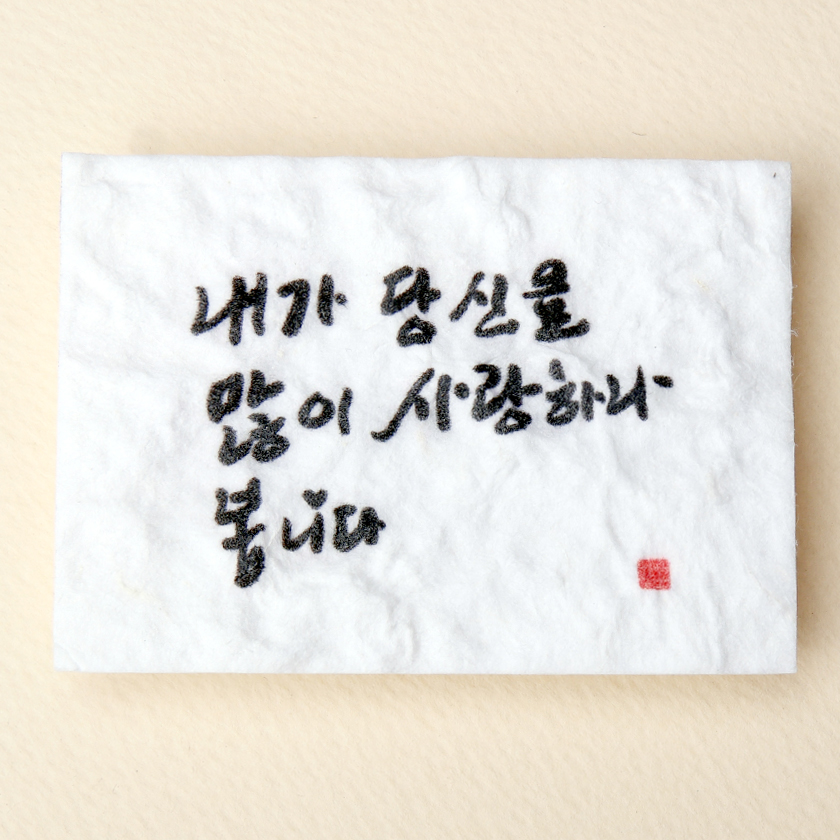 내가 당신을
많이 사랑하나
봅니다